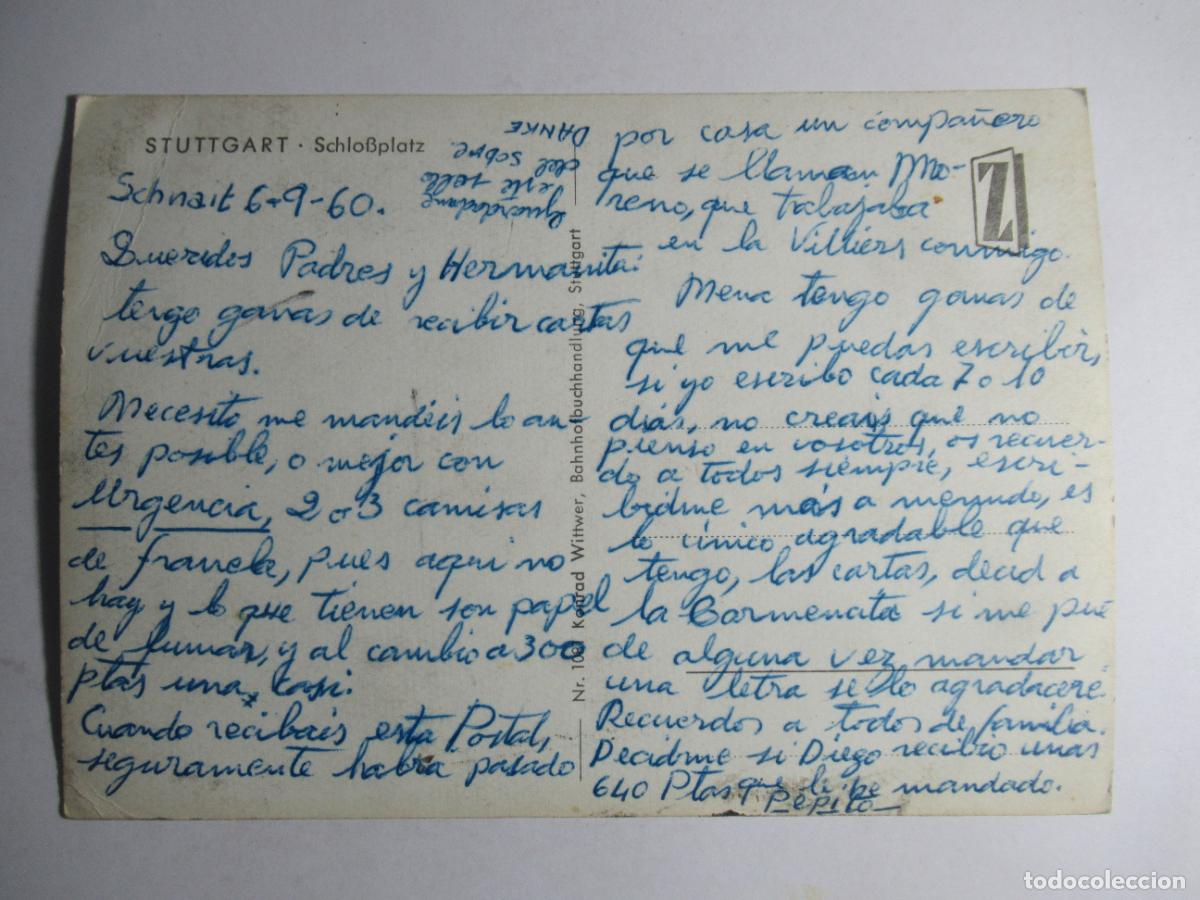 STUTTGART · Schloßplatz
Guardadme
este sello
del sobre.
DANKE
Schnait 6-9-60.
Queridos Padres y Hermanita:
tengo ganas de recibir cartas
vuestras.
Necesito me mandéis lo an-
tes posible, o mejor con
Urgencia, 2 o 3 camisas
de franela, pues aqui no
hay y lo que tienen son papel
de fumar, y al cambio a 300
ptas una, casi.
Cuando recibais esta Postal,
seguramente habra pasado
Nr. 108 Konrad Wittwer, Bahnhofbuchhandlung, Stuttgart
por casa un compañero
que se llaman Mo-
reno, que trabajaba
en la Villiers conmigo.
Mena tengo ganas de
que me puedas escribir,
si yo escribo cada 7 o 10
dias, no creais que no
pienso en vosotros, os recuer-
do a todos siempre, escri-
bidme más a menudo, es
lo único agradable que
tengo, las cartas, decid a
la Carmencita si me pue
de alguna vez mandar
una letra se lo agradacere.
Recuerdos a todos de familia.
Decidme si Diego recibio unas
640 Ptas que le he mandado.
Pepito
Z
todocoleccion